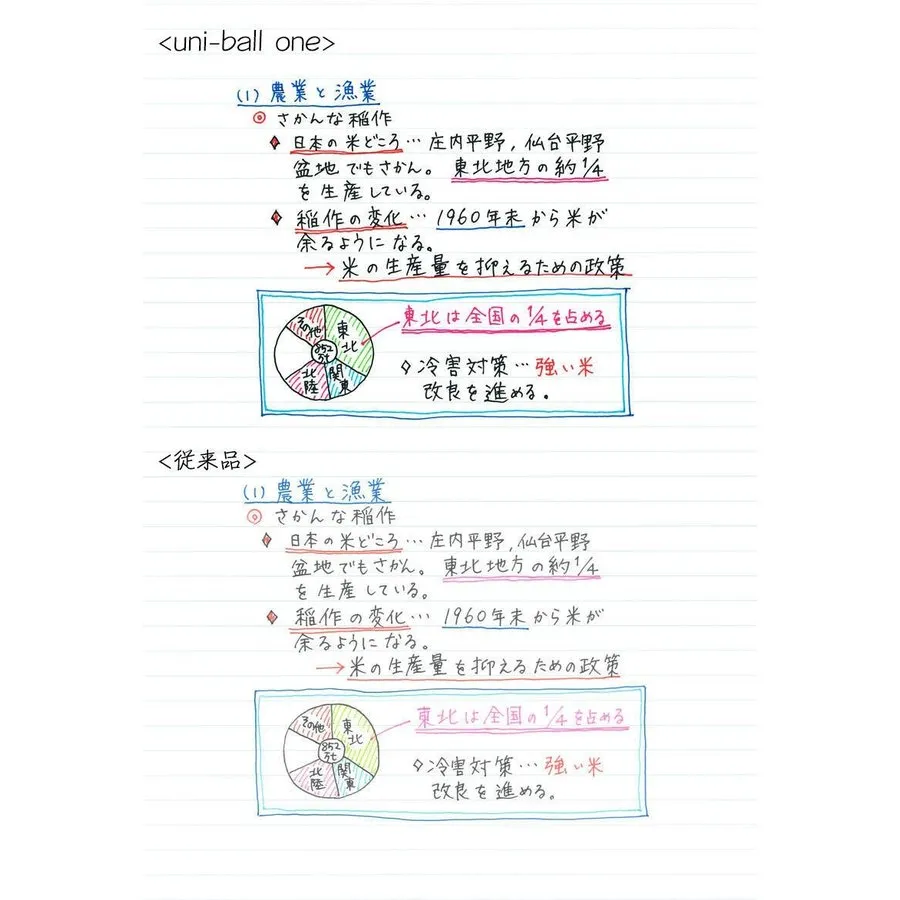 <uni-ball one>
(1) 農業と漁業
◎ さかんな稲作
♦ 日本の米どころ… 庄内平野, 仙台平野
盆地でもさかん。 東北地方の約1/4
を生産している。
♦ 稲作の変化… 1960年末から米が
余るようになる。
→ 米の生産量を抑えるための政策
東北は全国の1/4を占める
その他
東北
852万t
北陸
関東
◇冷害対策…強い米
改良を進める。
<従来品>
(1) 農業と漁業
◎ さかんな稲作
♦ 日本の米どころ… 庄内平野, 仙台平野
盆地でもさかん。 東北地方の約1/4
を生産している。
♦ 稲作の変化… 1960年末から米が
余るようになる。
→米の生産量を抑えるための政策
東北は全国の1/4を占める
その他
東北
852万t
北陸
関東
◇冷害対策…強い米
改良を進める。